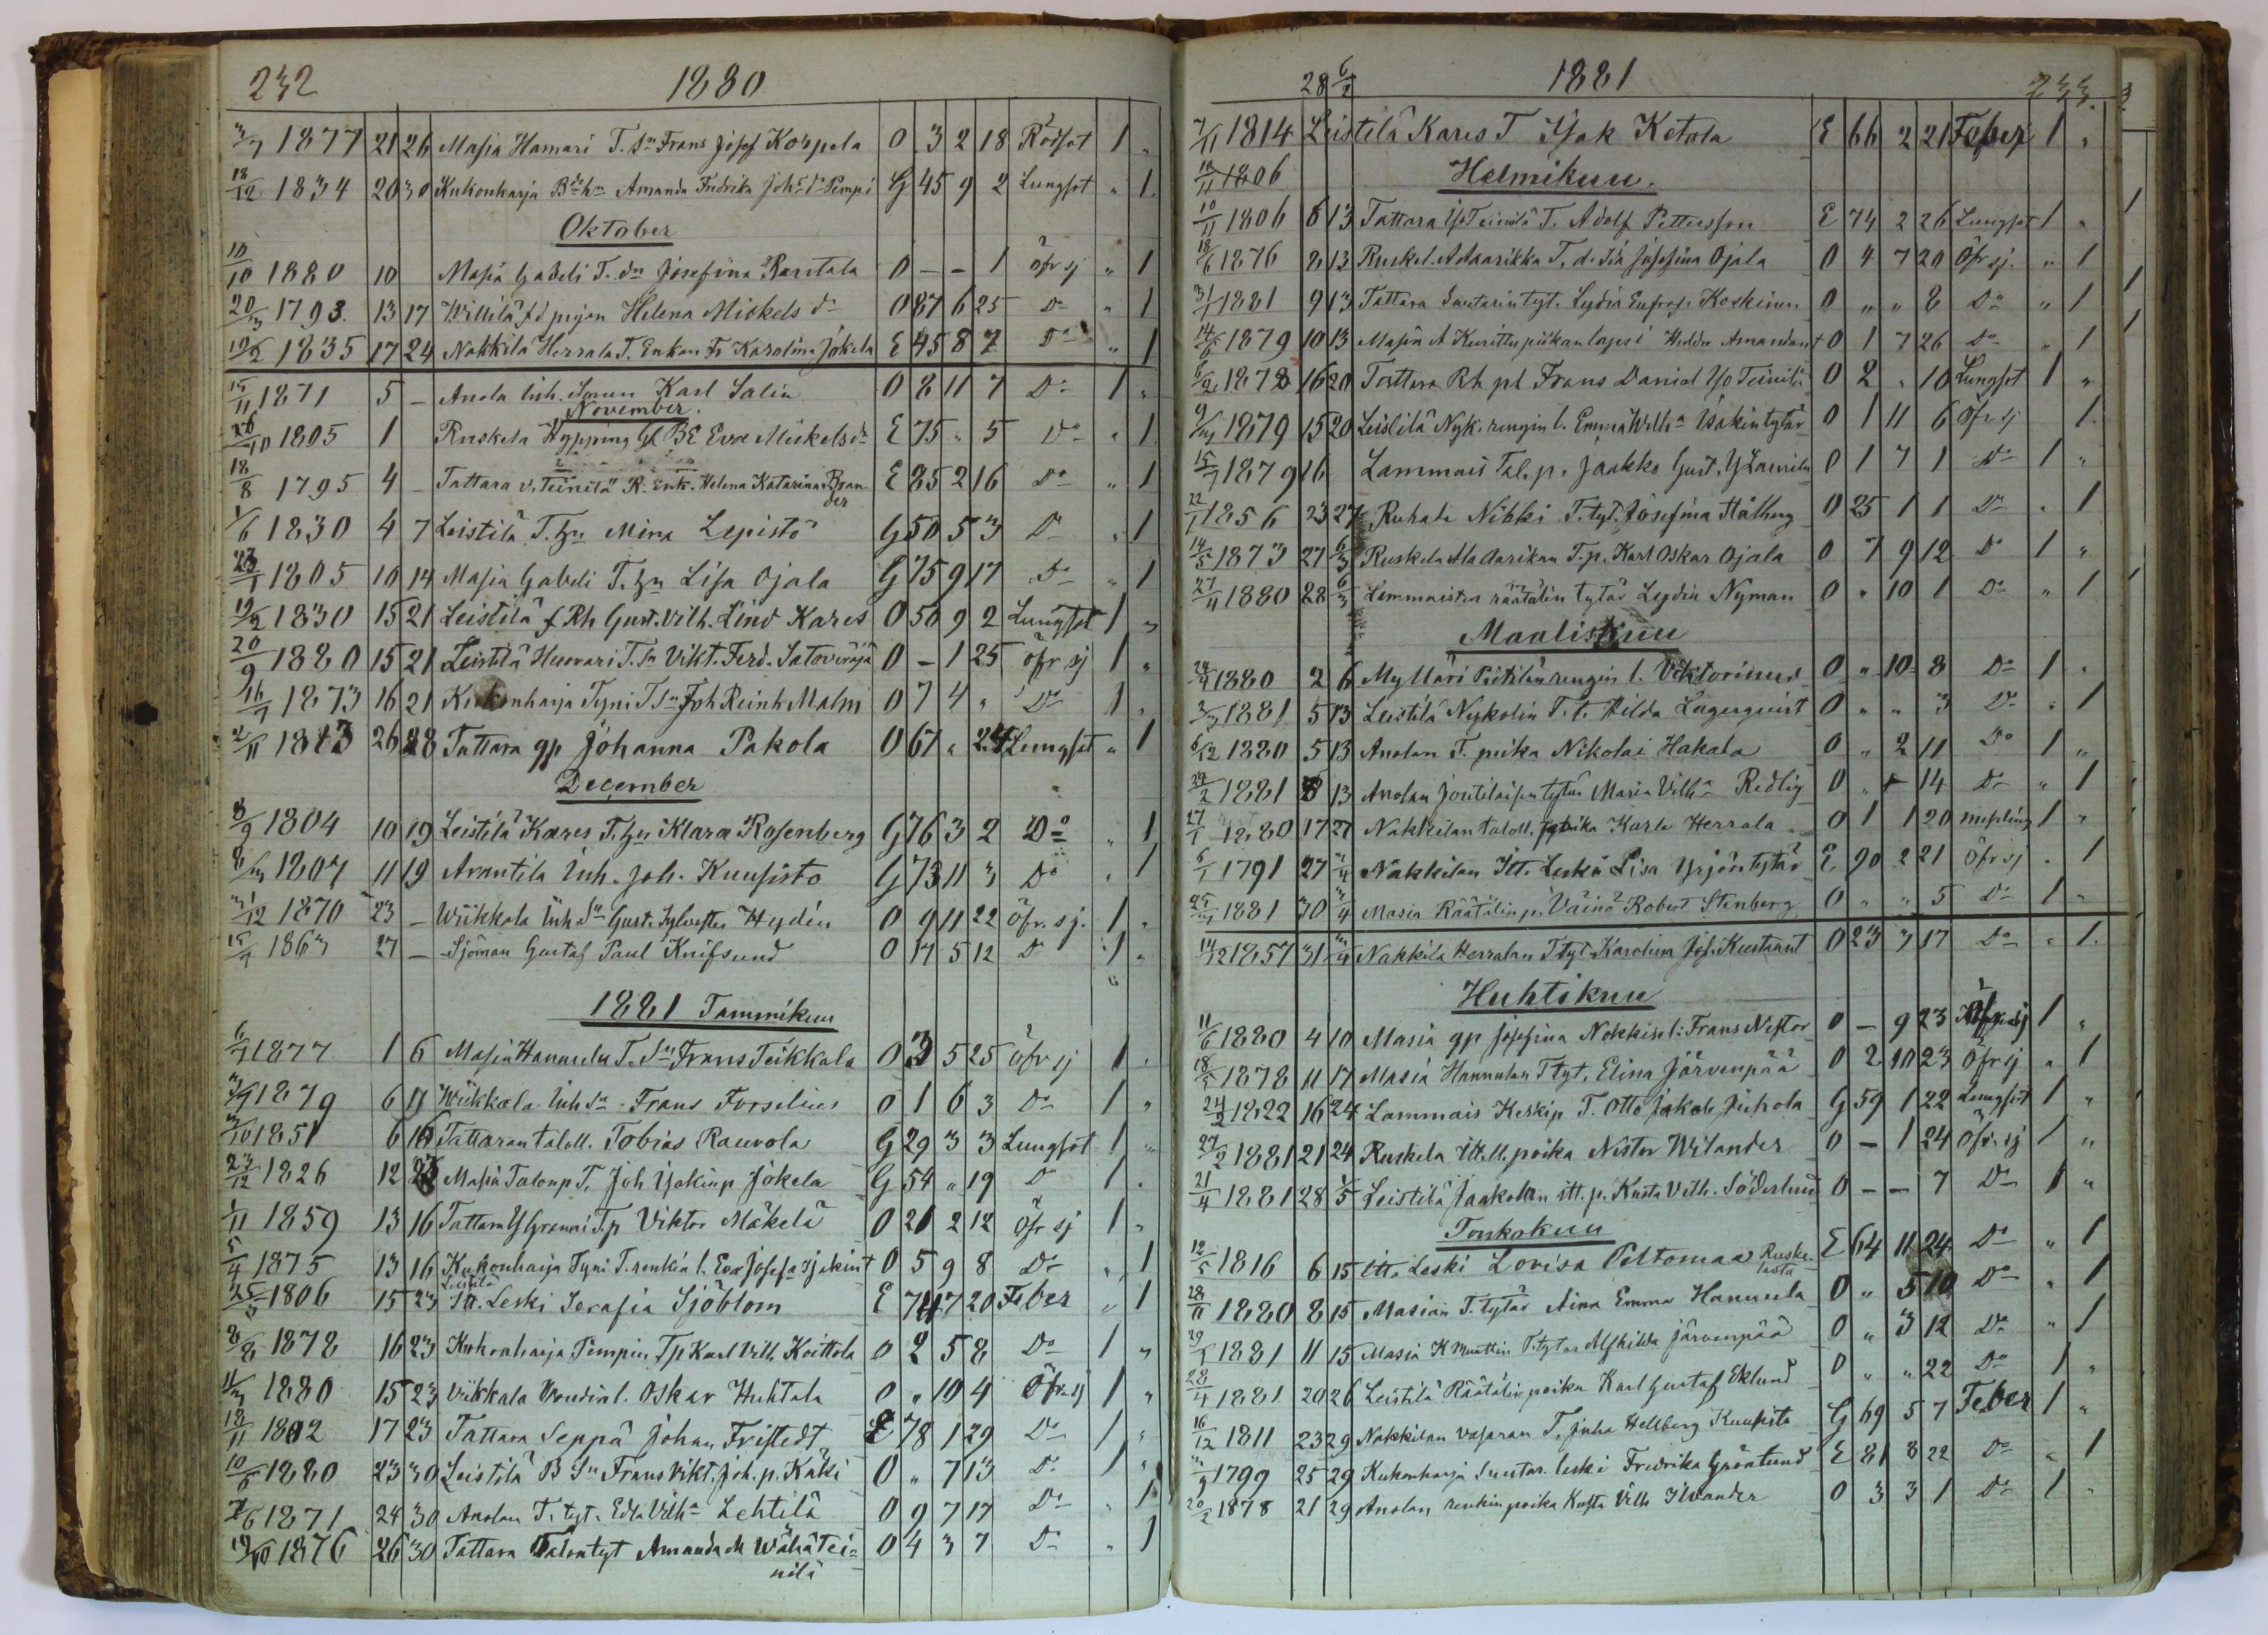 232 1880
3/7 1877 21 26 Masia Hamari T. Sn Frans Josef Korpela 0 3 2 18 Rödsot 1 "
18/12 1834 20 30 Kukonharja Amanda Fredrika Pimpi G 45 9 2 Lungsot " 1
Oktober
10/10 1880 10 Masia Gabeli T. dn Josefina Rantala 0 - - 1 öfr sj " 1
20/3 1793 13 17 Willilä pigan Helena Mickels dr 0 87 6 25 Do " 1
10/2 1835 17 24 Nakkila Herrala T. Enkan Fr Karolina Jokela E 45 8 7 Do " 1
1871 5 - Anola Inh. Sonen Karl Salin 0 8 11 7 Do 1 "
November
1805 1 Ruskela Hypping Eva Mickelsdr E 75 " 5 Do " 1
18/8 1795 4 - Tattara v. Teinilä R. Enk. Helena Katarina Bran-
der E 85 2 16 Do " 1
1/6 1830 4 7 Leistilä T. hu Mina Lepistö G 50 5 3 Do " 1
23/1 1805 10 14 Masia Gabeli T. hu Lisa Ojala G 75 9 17 Do " 1
1830 15 21 Leistilä f Rh Gust. Vilh. Lind Kares 0 50 9 2 Lungsot 1 "
20/9 1880 15 21 Leistilä Huovari T. Sn Vikt. Ferd. Satoviräjä 0 - 1 25 öfr sj 1 "
16/7 1873 16 21 Kukonharja Tyni T Sn Joh Reinh Malm 0 7 4 " Do 1 "
2/11 1813 26 28 Tattara gp Johanna Pakola 0 67 " 24 Lungsot " 1
December
8/9 1804 10 19 Leistilä Kares T. hu Klara Rosenberg G 76 3 2 Do " 1
8/3 1807 11 19 Arantila Inh. Joh. Kuusisto G 73 11 3 Do " 1
31/12 1870 23 - Wiikkala Inh Sn Gust. Sylvester Heydén 0 9 11 22 Öfr. sj. 1 "
15/7 1863 27 - Sjöman Gustaf Paul Knifsund 0 17 5 12 Do 1 "
1881 Tammikuu
6/7 1877 1 6 Masia Hannula T. Sn Frans Teikkala 0 3 5 25 öfr sj 1 "
1879 6 11 Wiikkala Inh Sn Frans Forselius 0 1 6 3 Do 1 "
3/10 1851 6 16 Tattaran taloll. Tobias Rauvola G 29 3 3 Lungsot 1 "
23/12 1826 12 Masia Talonp T. Joh Isakinp Jokela G 54 " 19 Do 1 "
1/11 1859 13 16 Tattara Y Granni T. p Viktor Mäkelä 0 21 2 12 öfr sj 1 "
5/4 1875 13 16 Kukonharja Tyni T. renkin l. Eva Josefa Isakint 0 5 9 8 Do " 1
Leistilä
25/5 1806 15 23 Itt. Leski Serafia Sjöblom E 74 7 20 Feber " 1
8/8 1878 16 23 Kukonharja Pimpin Tp Karl Vilh Koittola 0 2 5 8 Do 1 "
11/3 1880 15 23 Viikkala Voudin l. Oskar Huhtala 0 " 10 4 Öfr sj 1 "
18/11 1802 17 23 Tattara Seppä Johan Fristedt E 78 1 29 Do 1 "
10/6 1880 23 30 Leistilä B Sn Frans Vikt. Joh. p. Käki 0 " 7 13 Do 1 "
7/6 1871 24 30 Anolan T. tyt. Edla Vilh Lehtilä 0 9 7 17 Do " 1
19/10 1876 26 30 Tattara Talontyt Amanda M Wähä Tei-
nilä 0 4 3 7 Do " 1
28 6/2 1881 233
7/11 1814 Leistilä Kares T Isak Ketola E 66 2 21 Feber 1 "
10/11 1806 Helmikuu.
10/11 1806 6 13 Tattara Iso Teinilä T. Adolf Pettersson E 74 2 26 Lungsot 1 "
18/6 1876 8 13 Ruskel. A Maarikka T. Josefina Ojala 0 4 7 20 Öfr sj. " 1
31/1 1881 9 13 Tattara Suutarin tyt. Lydia Eufros. Koskinen 0 " " 8 Do " 1
14/6 1879 10 13 Masia A Kurittu piikan lapsi Hilda Amandant 0 1 7 26 Do " 1
6/2 1878 16 20 Tattara Rh pk Frans Daniel Iso Teinilä 0 2 " 10 Lungsot 1 "
9/3 1879 15 20 Leistilä Nyk. rengin l. Emma Wilha Isakintytär 0 1 11 6 öfr sj 1
15/7 1879 16 Lammais Tal. p. Jaakko Gust. Y Laurila 0 1 7 1 Do 1 "
22/1 1856 23 27 Ruhala Nikki T. tyt. Josefina Hällberg 0 25 1 1 Do " 1
14/5 1873 27 6/3 Ruskela Ala Aarikan T. p. Karl Oskar Ojala 0 7 9 12 Do 1 "
27/4 1880 28 6/3 Lemmaisten räätälin tytär Lydia Nyman 0 " 10 1 Do " 1
Maaliskuu
1880 2 6 Mylläri Pietilän rengin l. Viktorinus 0 " 10 8 Do 1 "
2/3 1881 5 13 Leistilä Nykolin T. t. Hilda Lagerqvist 0 " " 3 Do " 1
6/12 1880 5 13 Anolan T. poika Nikolai Hakala 0 " 2 11 Do 1 "
22/2 1881 8 13 Anolan Joutilaisen tytär Maria Vilha Redlig 0 " - 14 Do " 1
27/1 1880 17 27 Nakkilan taloll. poika Karle Herrala 0 1 1 20 mesling 1 "
6/1 1791 27 3/4 Nakkilan Itt. Leski Lisa Yrjöntytär E 90 2 21 öfr sj " 1
25/3 1881 30 3/4 Masia Räätälin p. Väinö Robert Stenberg 0 " " 5 Do 1 "
14/12 1857 31 3/4 Nakkila Herralan T tyt. Karolina Jos. Kustaant 0 23 3 17 Do " 1
Huhtikuu
11/6 1880 4 10 Masia gp Josefina Nokkis l: Frans Nestor 0 - 9 23 Öfr sj 1 "
18/5 1878 11 17 Masia Hannulan T tyt. Elina Järvenpää 0 2 10 23 Öfr sj " 1
24/2 1822 16 24 Lammais Keskip T. Otto Jakob Juhola G 59 1 22 Lungsot 1 "
27/2 1881 21 24 Ruskela itsell. poika Nestor Wilander 0 - 1 24 öfr. sj 1 "
21/4 1881 28 1/5 Leistilä Jaakolan itt. p. Kusta Vilh. Söderlund 0 - - 7 Do 1 "
Toukokuu
12/5 1816 6 15 Itt. Leski Lovisa Peltomaa Ruske-
lasta E 64 11 24 Do " 1
28/11 1880 8 15 Masian T. tytär Aina Emma Hannula 0 " 5 10 Do " 1
29/1 1881 11 15 Masia K Muattin T. tytär Mathilda Järvenpää 0 " 3 12 Do " 1
28/4 1881 20 26 Leistilä Räätälin poika Karl Gustaf Eklund 0 " " 22 Do 1 "
16/12 1811 23 29 Nakkilan vasaran T. Juha Hellberg Kuusisto G 69 5 7 Feber 1 "
3/9 1799 25 29 Kukonharja Suutar. leski Fredrika Grönlund E 81 8 22 Do " 1
20/2 1878 21 29 Anolan renkin poika Kusta Vilh Ilvander 0 3 3 1 Do 1 "